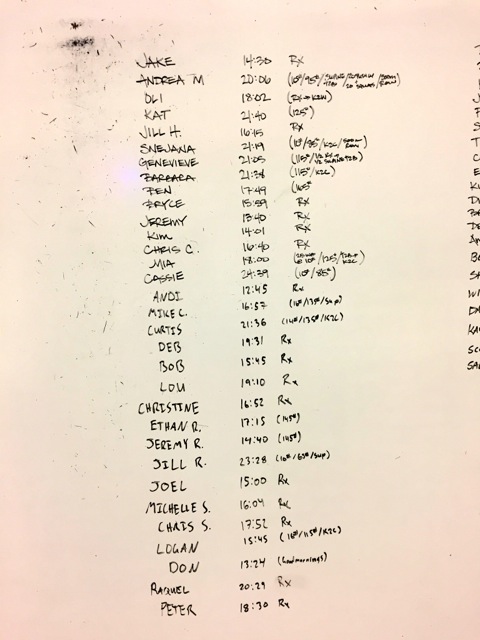 JAKE 14:30 Rx
ANDREA M 20:06
OLI 18:02
KAT 21:40 (125#)
JILL H. 16:15 Rx
SNEJANA 21:19 (10#/85#/K2C/
GENEVIEVE 21:05 (115#/
BARBARA 21:38 (115#/K2C)
BEN 17:49 (165#
BRYCE 15:59 Rx
JEREMY 13:40 Rx
KIM 14:01 Rx
CHRIS C. 16:40 Rx
MIA 18:00
CASSIE 24:39 (10#/85#)
ANDI 12:45 Rx
MIKE C. 16:57 (16#/135#/sup)
CURTIS 21:36 (14#/135#/K2C)
DEB 19:31 Rx
BOB 15:45 Rx
LOU 19:10 Rx
CHRISTINE 16:52 Rx
ETHAN R. 17:15 (145#)
JEREMY R. 19:40 (145#)
JILL R. 23:28 (10#/65#/sup)
JOEL 15:00 Rx
MICHELLE S. 16:04 Rx
CHRIS S. 17:52 Rx
LOGAN 15:45 (16#/115#/K2C)
DON 13:24 (Goodmornings)
RAQUEL 20:29 Rx
PETER 18:30 Rx